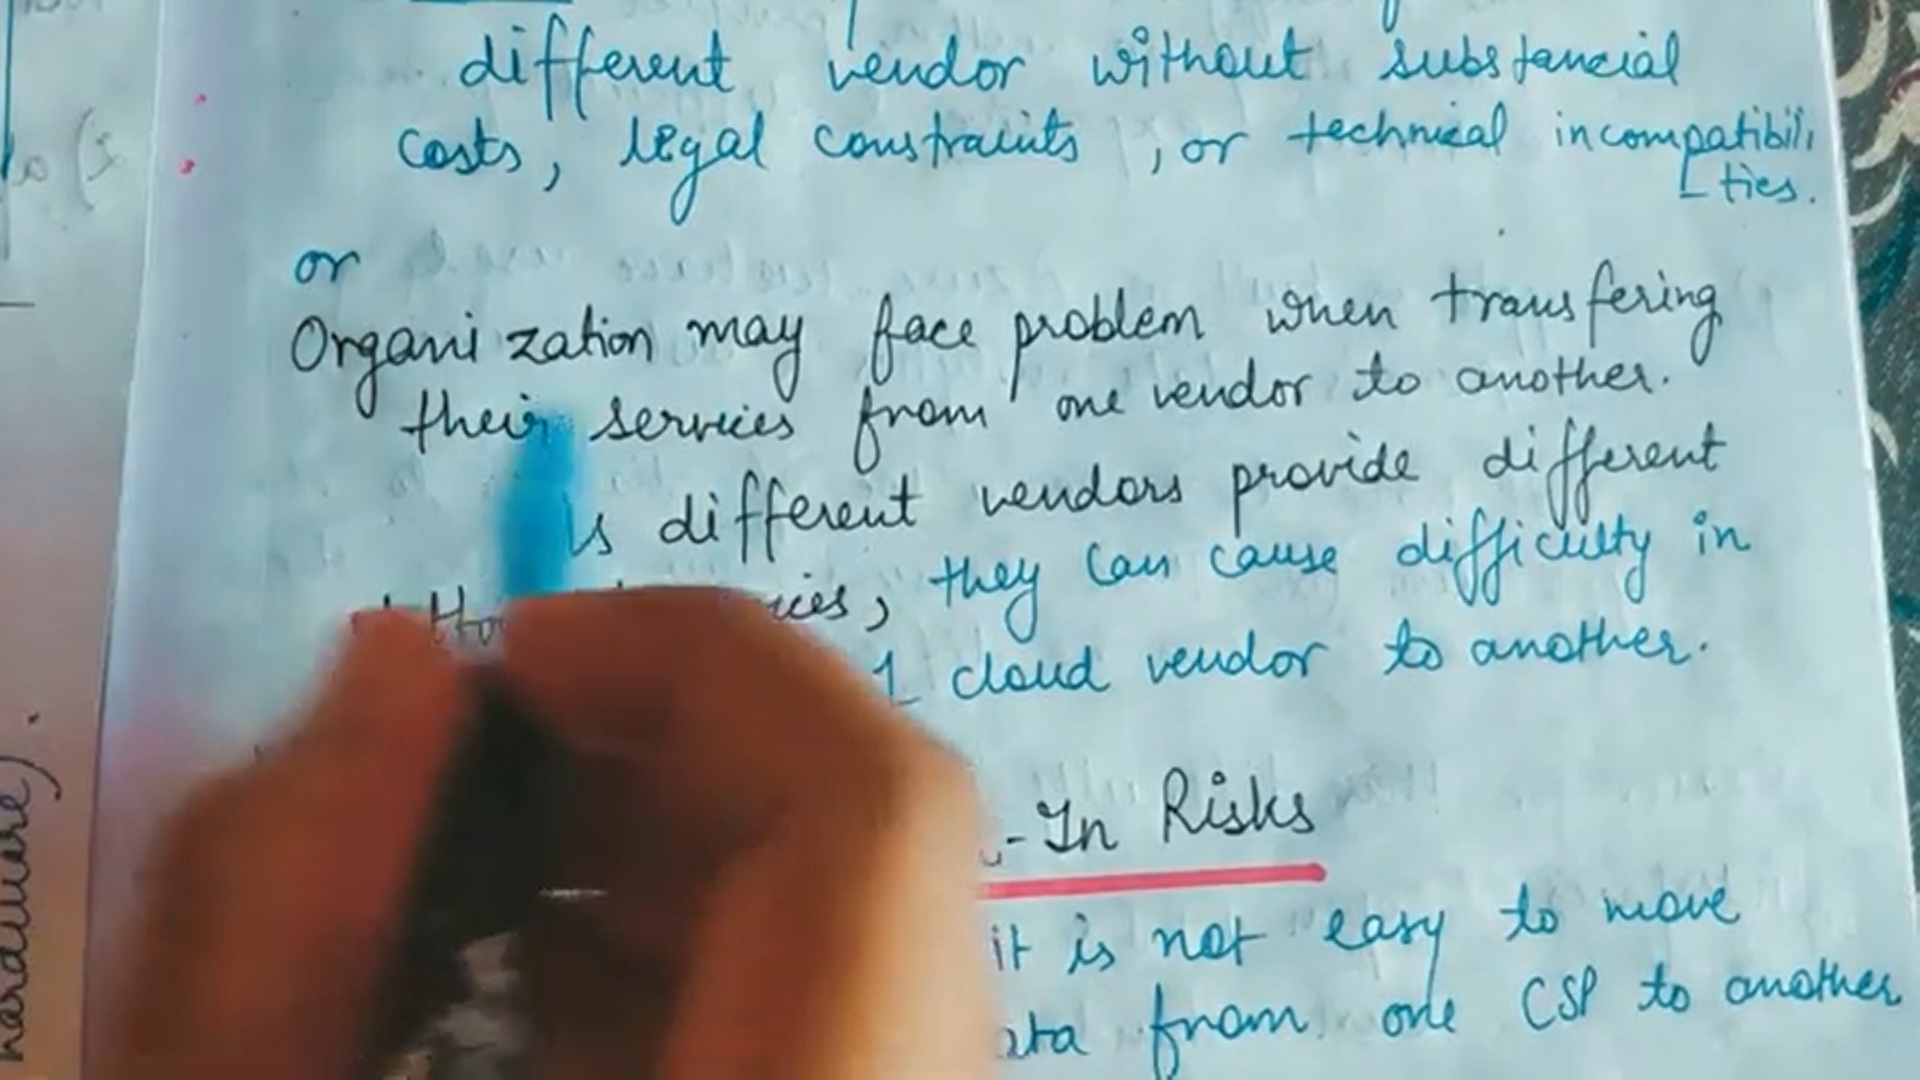 different vendor without substancial
costs, legal constraints, or technical incompatibili
ties.
or
Organization may face problem when transfering
their services from one vendor to another.
different vendors provide different
they can cause difficulty in
1 cloud vendor to another.
-In Risks
it is not easy to move
from one CSP to another
hardware).